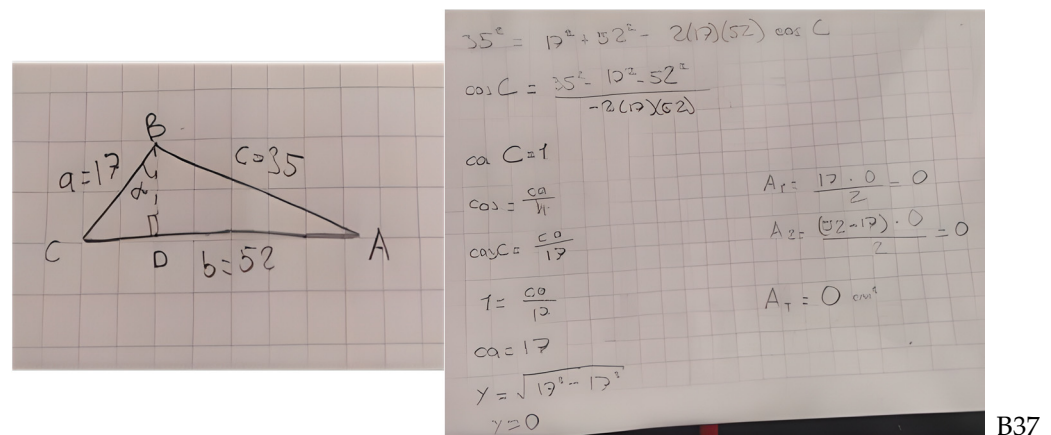 B
a=17
c=35
α
C
D
b=52
A
35² = 17² + 52² - 2(17)(52) cos C
cos C = 35² - 17² - 52² / -2(17)(52)
ca C=1
cos = ca / H
cosC = ca / 17
1 = ca / 17
ca = 17
y = √17² - 17²
y=0
A₁ = 17 · 0 / 2 = 0
A₂ = (52-17) · 0 / 2 = 0
A_T = 0 cm²
B37